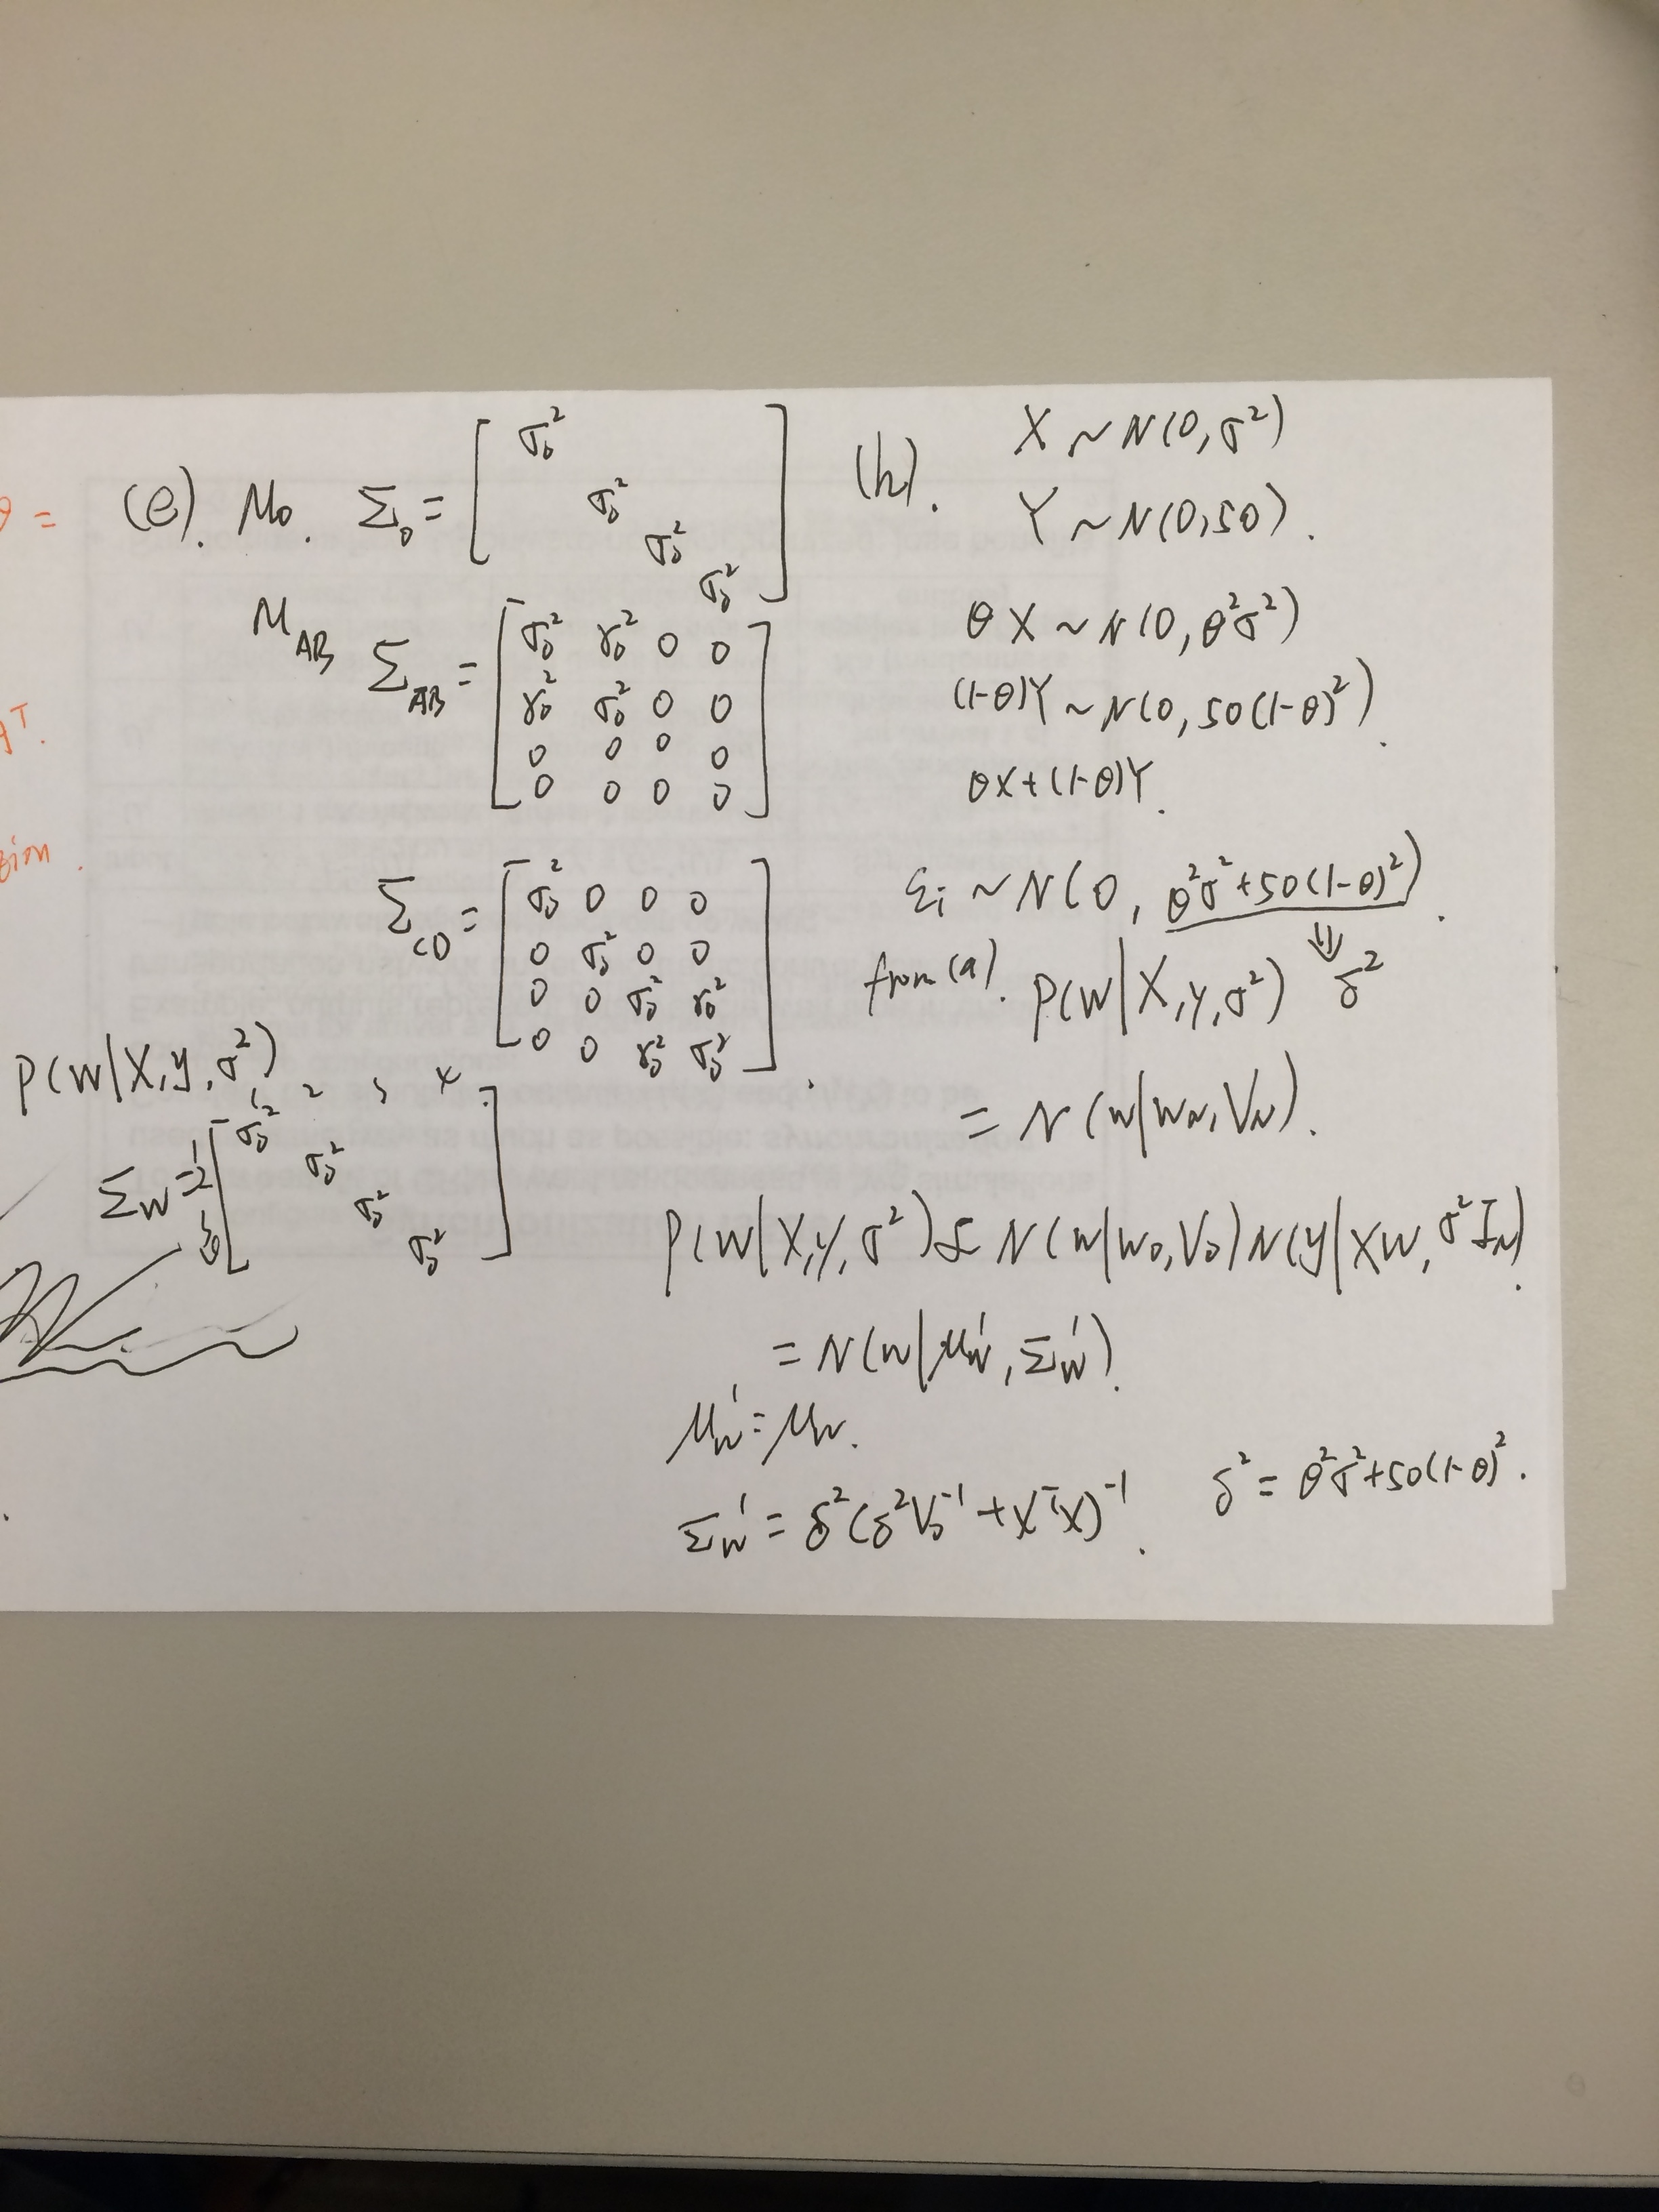 θ =
(e). M₀. Σ₀ = [ σ₀²
σ₀²
σ₀²
σ₀² ]
M_AB Σ_AB = [ σ₀² γ₀² 0 0
γ₀² σ₀² 0 0
0 0 0 0
0 0 0 0 ]
Σ_CD = [ σ₀² 0 0 0
0 σ₀² 0 0
0 0 σ₀² γ₀²
0 0 γ₀² σ₀² ] .
P(W|X,y,σ²)
1 2 3 4
Σ_W = 1 [ σ₀²
2 σ₀²
3 σ₀²
σ₀² ]
(h). X ~ N(0, σ²)
Y ~ N(0, 50).
θX ~ N(0, θ²σ²)
(1-θ)Y ~ N(0, 50(1-θ)²).
θX + (1-θ)Y.
εᵢ ~ N(0, θ²σ² + 50(1-θ)²).
⇓
from (a). P(W|X,y,σ²) δ²
= N(W|W_N, V_N).
P(W|X,y,σ²) ∝ N(W|W₀,V₀) N(y|XW, σ²I_N).
= N(W|μ_W', Σ_W').
μ_W' = μ_W.
Σ_W' = δ²(δ²V₀⁻¹ + XᵀX)⁻¹. δ² = θ²σ² + 50(1-θ)².